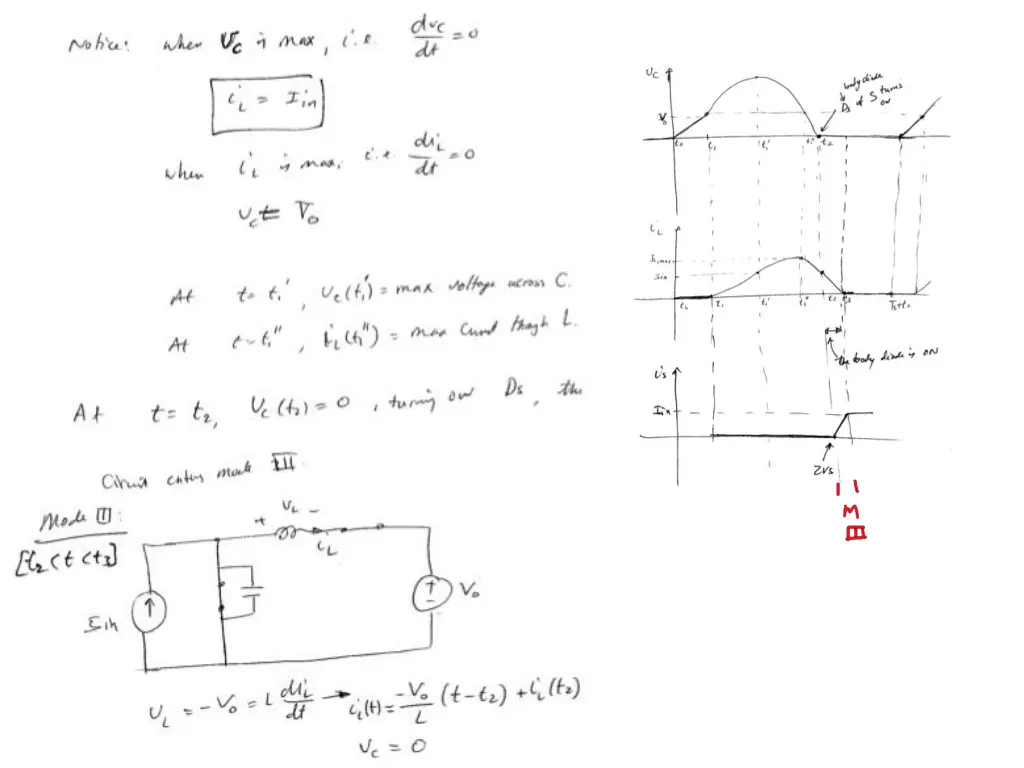 Notice: when Vc is max, i.e. dvc/dt = 0
iL = Iin
when iL is max, i.e. diL/dt = 0
vc = Vo
At t = t1', vc(t1') = max voltage across C.
At t = t1'', iL(t1'') = max through L.
At t = t2, Vc(t2) = 0, turning on Ds, the
Circuit enters mode III.
Mode III:
[t2 < t < t3]
+ VL −
iL
Iin
+
−
Vo
VL = −Vo = L diL/dt → iL(t) = −Vo/L (t−t2) + iL(t2)
Vc = 0
vc
body diode
Ds of S turns
ON
Vo
t0 t1 t1' t1'' t2
iL
IL,max
Iin
t0 t1 t1' t1'' t2 t3 Ts+t0
the body diode is ON
is
Iin
ZVS
M
III